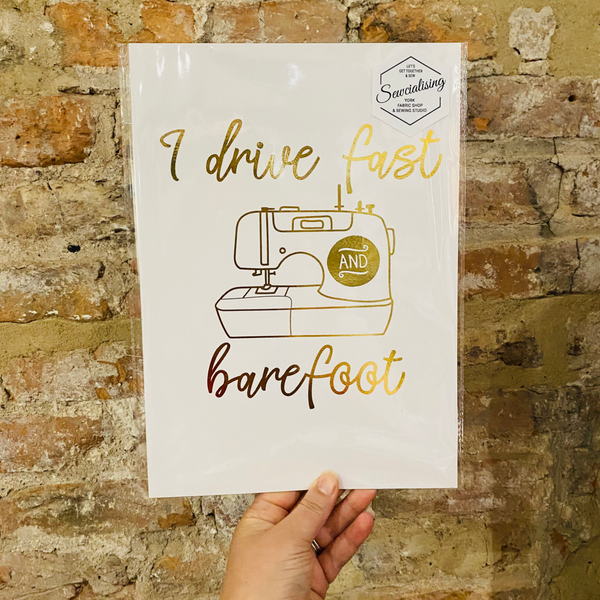 LET'S
GET TOGETHER
& SEW
Sewcialising
YORK
FABRIC SHOP
& SEWING STUDIO
I drive fast
AND
barefoot